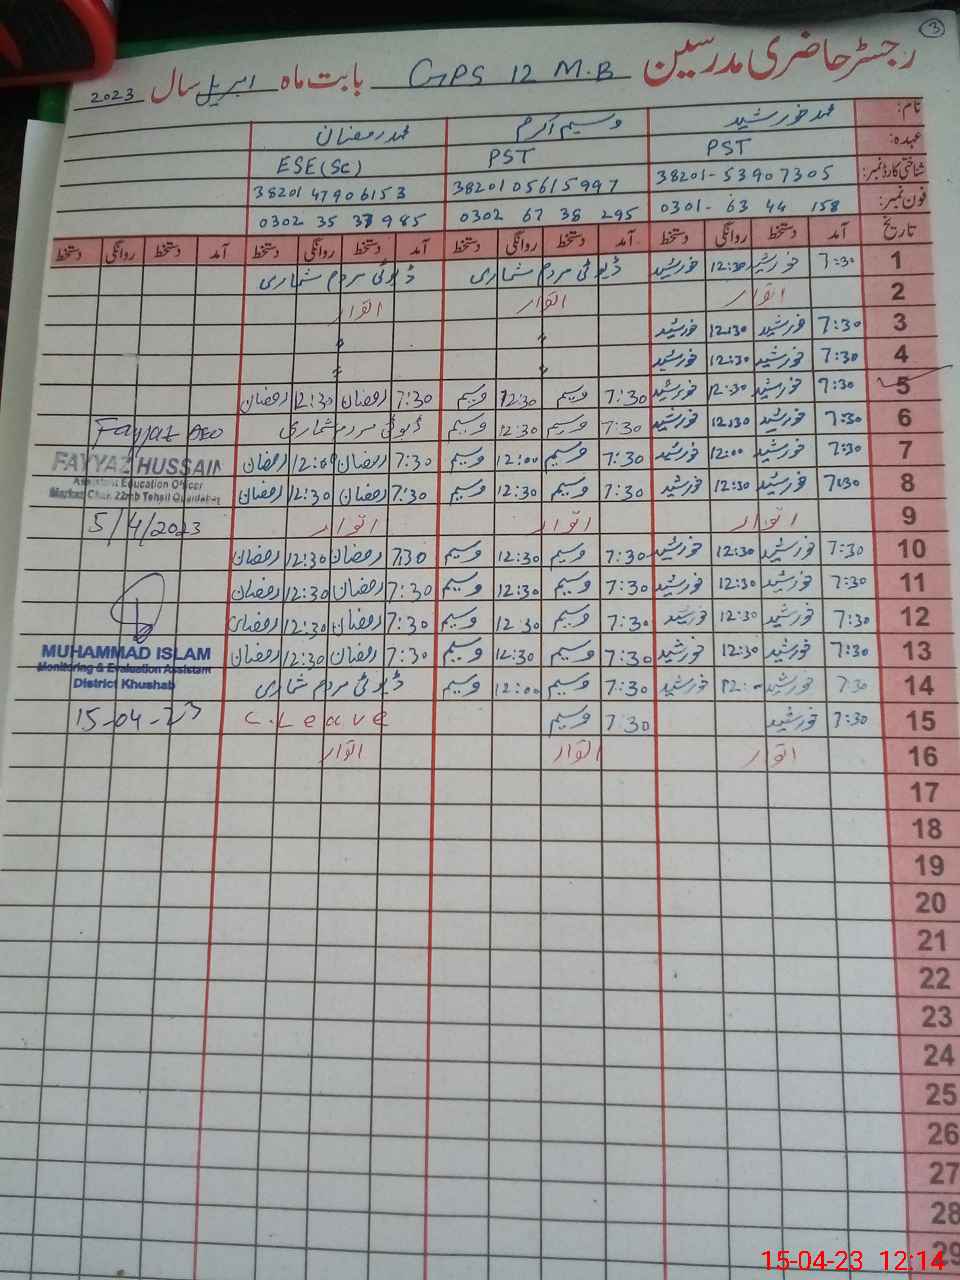 3
رجسٹر حاضری مدرسین GPS 12 M.B بابت ماہ اپریل سال 2023
نام: محمد خورشید وسیم اکرم محمد رمضان
عہدہ: PST PST ESE(SC)
شناختی کارڈ نمبر: 38201-53907305 3820105615997 3820147906153
فون نمبر: 0301-6344158 0302 67 38 295 0302 35 37 985
تاریخ آمد دستخط روانگی دستخط آمد دستخط روانگی دستخط آمد دستخط روانگی دستخط آمد دستخط روانگی دستخط
1 7:30 خورشید 12:30 خورشید ڈیوٹی مردم شماری ڈیوٹی مردم شماری
2 اتوار اتوار اتوار
3 7:30 خورشید 12:30 خورشید 〃 〃
4 7:30 خورشید 12:30 خورشید 〃 〃
5 7:30 خورشید 12:30 خورشید 7:30 وسیم 12:30 وسیم 7:30 رمضان 12:30 رمضان
6 7:30 خورشید 12:30 خورشید 7:30 وسیم 12:30 وسیم ڈیوٹی مردم شماری Fayyaz AEO
7 7:30 خورشید 12:00 خورشید 7:30 وسیم 12:00 وسیم 7:30 رمضان 12:00 رمضان FAYYAZ HUSSAIN
Assistant Education Officer
8 7:30 خورشید 12:30 خورشید 7:30 وسیم 12:30 وسیم 7:30 رمضان 12:30 رمضان Markaz Chak 22mb Tehsil Quaidabad
9 اتوار اتوار اتوار 5/4/2023
10 7:30 خورشید 12:30 خورشید 7:30 وسیم 12:30 وسیم 7:30 رمضان 12:30 رمضان
11 7:30 خورشید 12:30 خورشید 7:30 وسیم 12:30 وسیم 7:30 رمضان 12:30 رمضان
12 7:30 خورشید 12:30 خورشید 7:30 وسیم 12:30 وسیم 7:30 رمضان 12:30 رمضان
13 7:30 خورشید 12:30 خورشید 7:30 وسیم 12:30 وسیم 7:30 رمضان 12:30 رمضان MUHAMMAD ISLAM
Monitoring & Evaluation Assistant
14 7:30 خورشید 12:- خورشید 7:30 وسیم 12:00 وسیم ڈیوٹی مردم شماری District Khushab
15 7:30 خورشید 7:30 وسیم C.Leave 15-04-23
16 اتوار اتوار اتوار
17
18
19
20
21
22
23
24
25
26
27
28
29
15-04-23 12:14